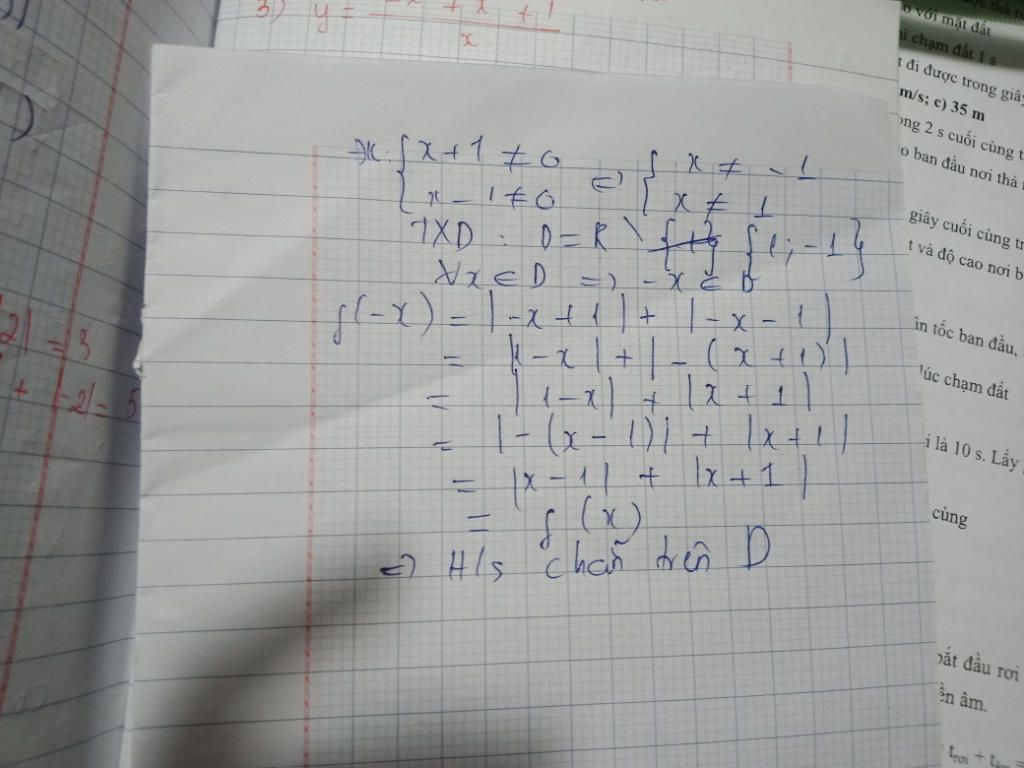 3) y = x + 1
x
đk: { x + 1 ≠ 0 ⇔ { x ≠ - 1
x - 1 ≠ 0 x ≠ 1
TXD : D = R \ {1; -1}
∀x ∈ D => -x ∈ D
f(-x) = |-x + 1| + |-x - 1|
= |1 - x| + |-(x + 1)|
= |1 - x| + |x + 1|
= |-(x - 1)| + |x + 1|
= |x - 1| + |x + 1|
= f(x)
=> H/s chẵn trên D
2| = 3
+ |-2| = 5
o với mặt đất
chạm đất 1 s
t đi được trong giây
m/s; c) 35 m
ong 2 s cuối cùng t
o ban đầu nơi thả
giây cuối cùng tr
t và độ cao nơi b
ận tốc ban đầu,
lúc chạm đất
i là 10 s. Lấy
cùng
bắt đầu rơi
ền âm.
t rơi + t âm =